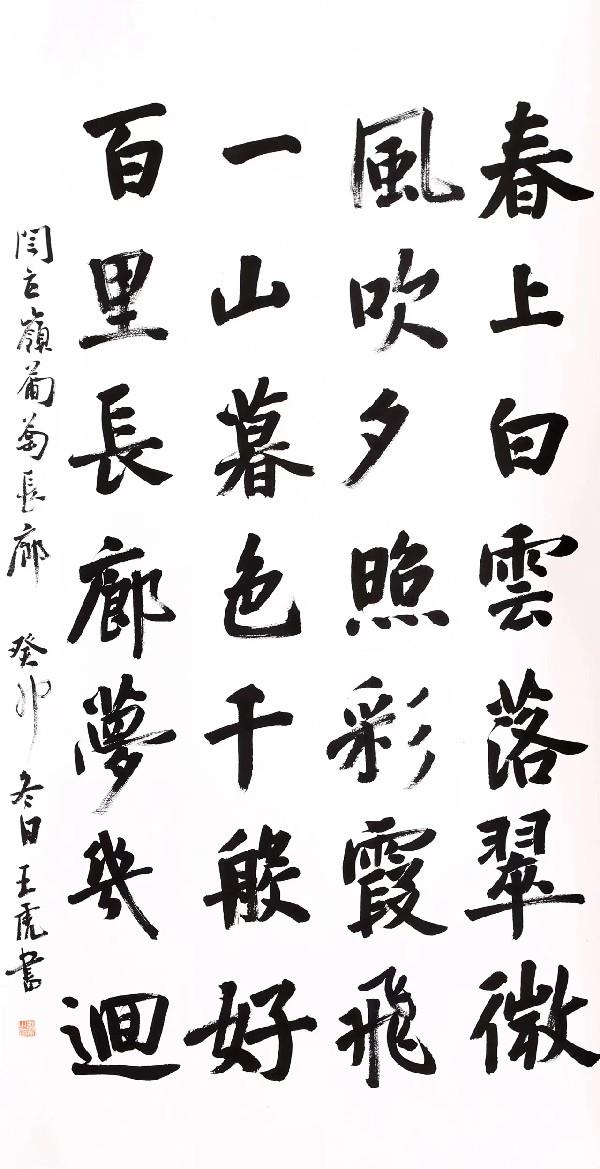 春上白雲落翠微
風吹夕照彩霞飛
一山暮色千般好
百里長廊夢幾迴
閆立嶺葡萄長廊 癸卯冬日王虎書